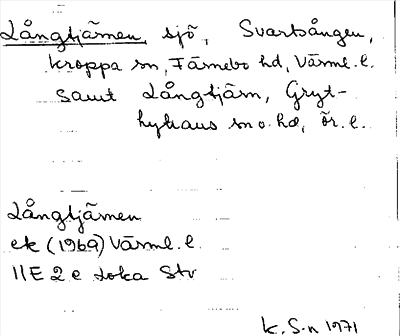 Långtjärnen, sjö, Svartsången,
Kroppa sn, Färnebo hd, Värml. l.
samt Långtjärn, Gryt-
hyttans sn o. hd, Ör. l.
Långtjärnen
ek (1969) Värml. l.
11E 2e Loka Stv
K. S-n 1971